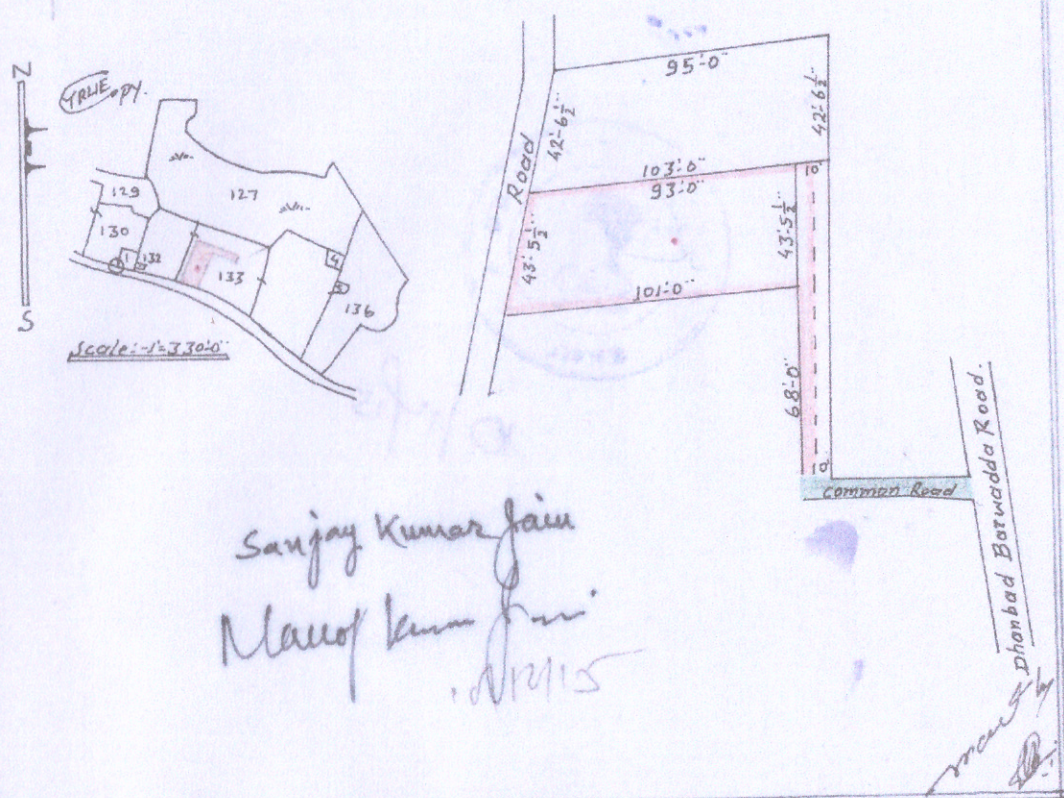 N
S
TRUE opy.
129
127
130
1
132
133
4
136
Scale:-1"=330'-0"
Road
95'-0"
42'-6½"
42'-6½"
103'-0"
93'-0"
43'-5½"
43'-5½"
101'-0"
68'-0"
Common Road
Dhanbad Barwadda Road.
Sanjay Kumar Jain
Manoj Kumar Jain
12/15